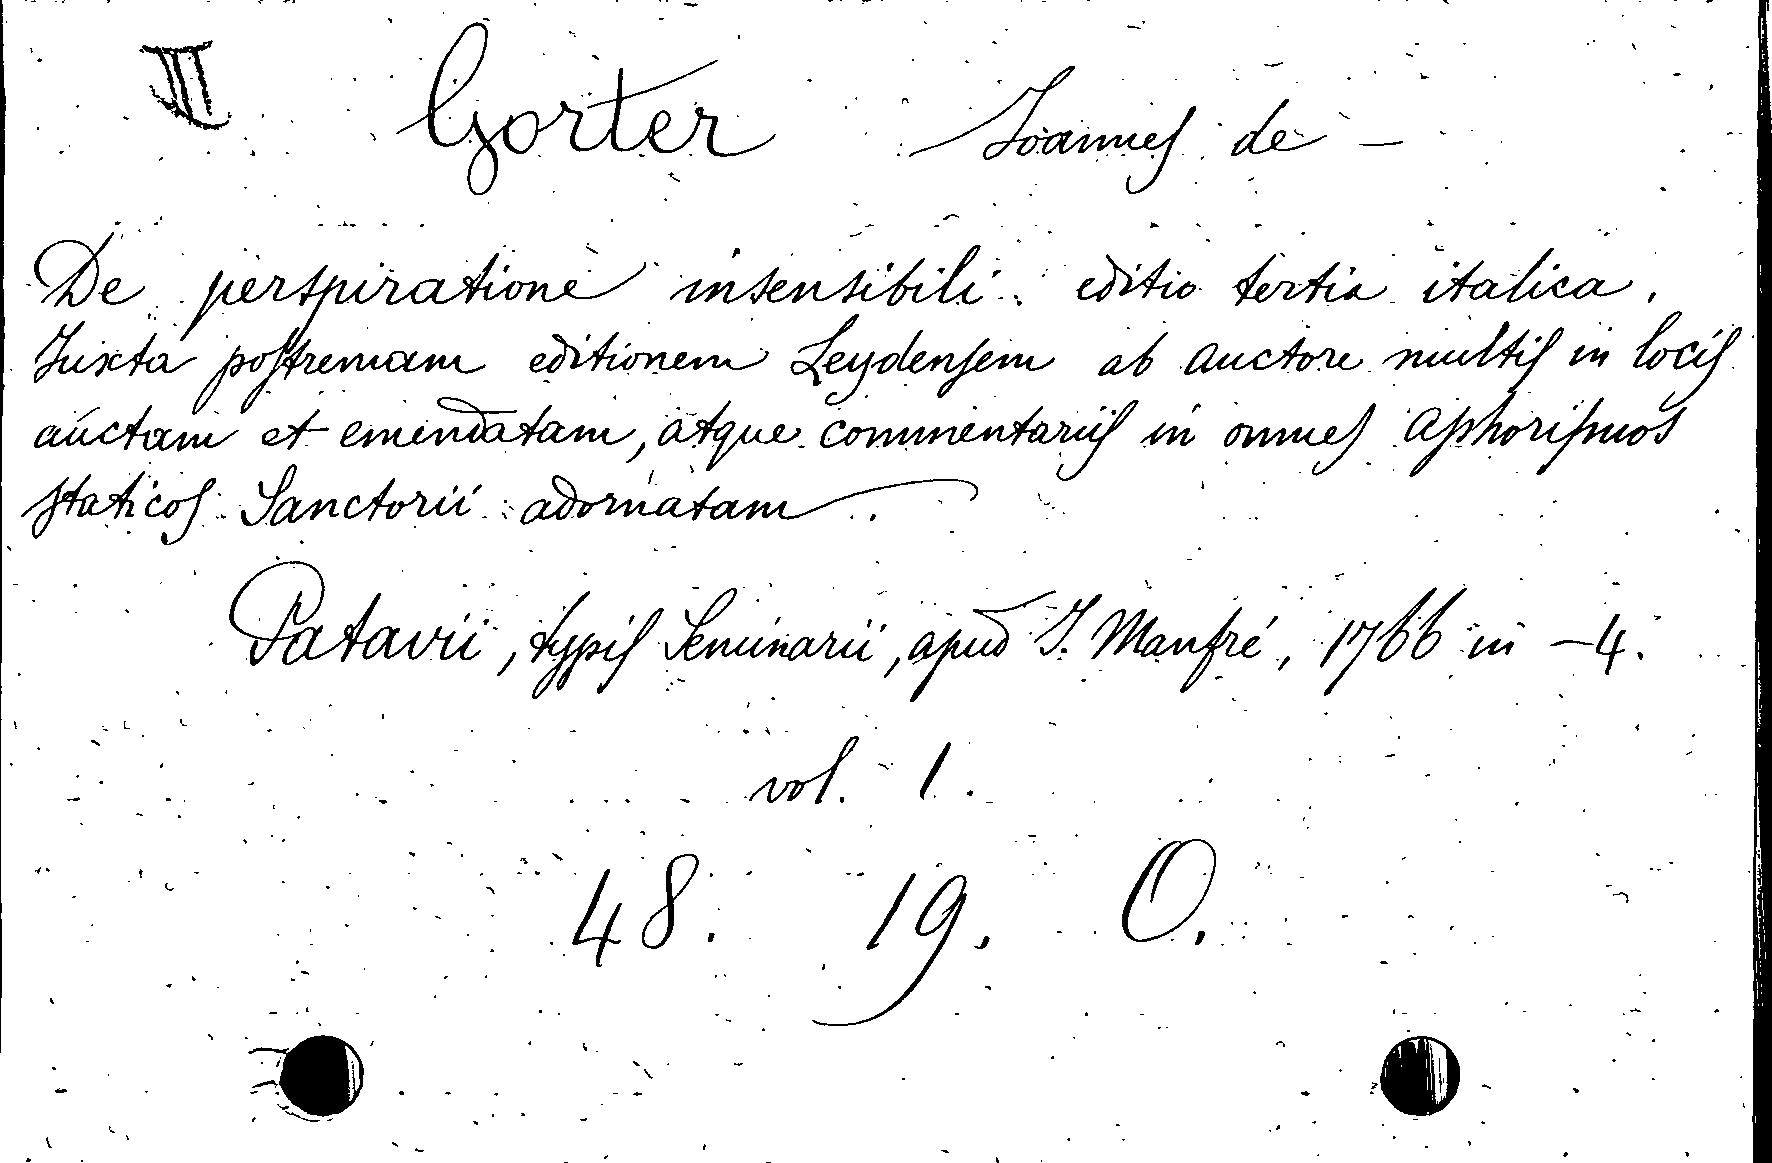 III Gorter Joannes de –
De perspiratione insensibili. editio tertia italica.
Juxta postremam editionem Leydensem ab auctore multis in locis
auctam et emendatam, atque commentariis in omnes aphorismos
staticos Sanctorii adornatam.
Patavii, typis Seminarii, apud J. Manfré, 1766 in –4.
vol. 1.
48. 19. O.